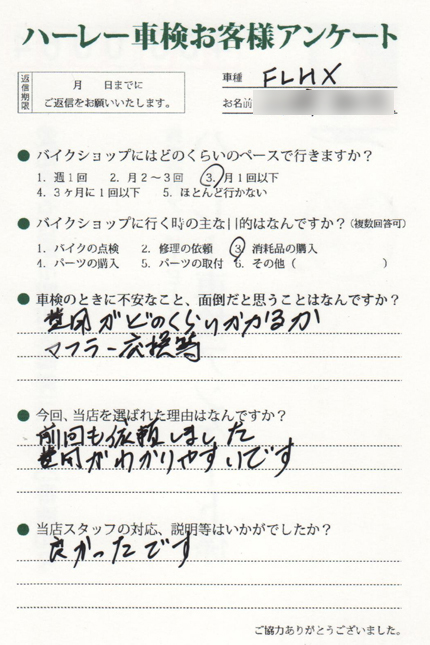 ハーレー車検お客様アンケート
返信期限
月　　日までに
ご返信をお願いいたします。
車種 FLHX
お名前
● バイクショップにはどのくらいのペースで行きますか？
1. 週1回　2. 月2～3回　3. 月1回以下
4. 3ヶ月に1回以下　5. ほとんど行かない
● バイクショップに行く時の主な目的はなんですか？（複数回答可）
1. バイクの点検　2. 修理の依頼　3. 消耗品の購入
4. パーツの購入　5. パーツの取付　6. その他（　　　　　　）
● 車検のときに不安なこと、面倒だと思うことはなんですか？
費用がどのくらいかかるか
マフラー交換等
● 今回、当店を選ばれた理由はなんですか？
前回も依頼しました
費用がわかりやすいです
● 当店スタッフの対応、説明等はいかがでしたか？
良かったです
ご協力ありがとうございました。